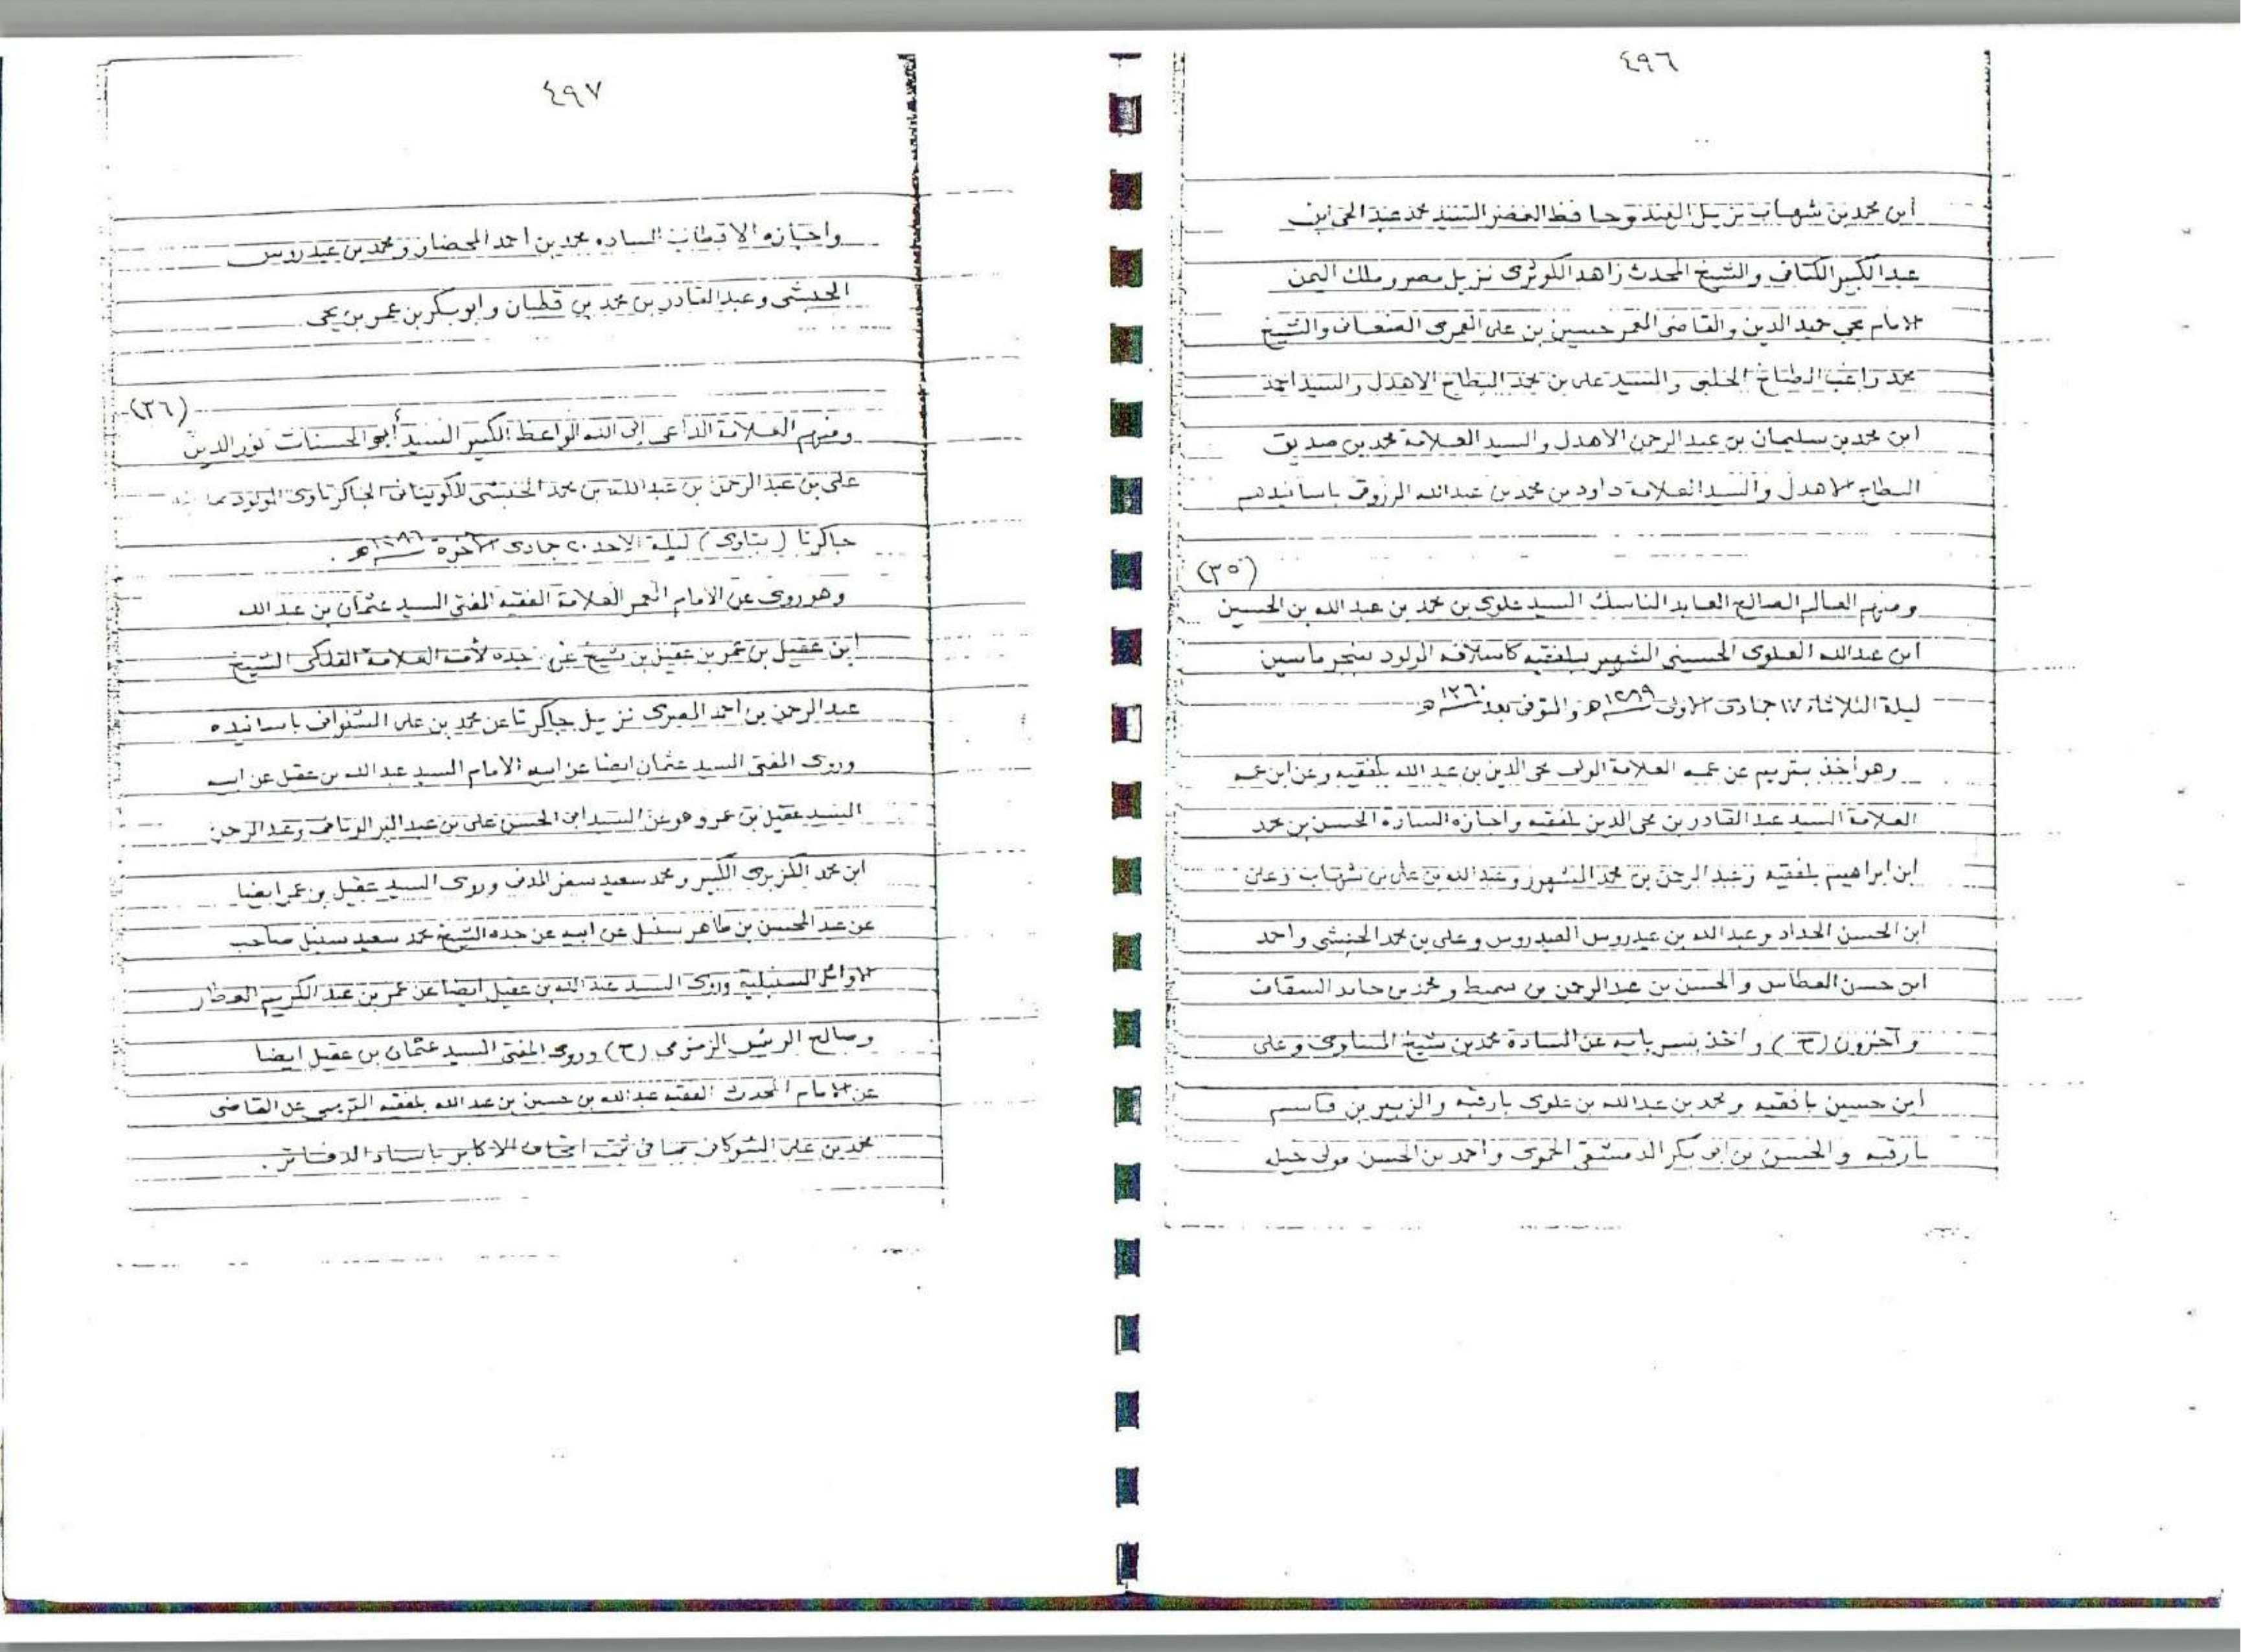 ٤٩٦
ابن محمد بن شهاب نزيل الهند وحافظ العصر السيد محمد عبد الحي ابن
عبد الكبير الكتاني والشيخ المحدث زاهد الكوثري نزيل مصر وملك اليمن
الامام يحي حميد الدين والقاضي المعمر حسين بن علي العمري الصنعاني والشيخ
محمد راغب الطباخ الحلبي والسيد علي بن محمد البطاح الاهدل والسيد احمد
ابن محمد بن سليمان بن عبد الرحمن الاهدل والسيد العلامة محمد بن صديق
البطاح الاهدل والسيد العلامة داود بن محمد بن عبد الله المرزوقي باسانيدهم
(٣٥)
ومنهم العالم الصالح العابد الناسك السيد علوي بن محمد بن عبد الله بن الحسين
ابن عبد الله العلوي الحسيني الشهير ببلفقيه كاسلافه المولود بنجرماسين
ليلة الثلاثاء ١٧ جمادى الاولى ١٢٨٩ هـ والمتوفى بعد ١٣٦٠ هـ
وهو أخذ بتريم عن عمه العلامة الولي محي الدين بن عبد الله بلفقيه وعن ابن عمه
العلامة السيد عبد القادر بن محي الدين بلفقيه واجازه السادة الحسن بن محمد
ابن ابراهيم بلفقيه وعبد الرحمن بن محمد المشهور وعبد الله بن علي بن شهاب وعلي
ابن الحسن الحداد وعبد الله بن عيدروس العيدروس وعلي بن محمد الحبشي واحمد
ابن حسن العطاس والحسن بن عبد الرحمن بن سميط ومحمد بن حامد السقاف
وآخرون (ح) واخذ بسربايه عن السادة محمد بن شيخ المساوى وعلي
ابن حسين بافقيه ومحمد بن عبد الله بن علوي بارقبه والزبير بن قاسم
بارقبه والحسن بن ابو بكر الدمشقي الحموي واحمد بن الحسن مولى خيله
٤٩٧
واجازه الاقطاب الساده محمد بن احمد المحضار ومحمد بن عيدروس
الحبشي وعبد القادر بن محمد بن قطبان وابو بكر بن عمر بن يحي
(٣٦)
ومنهم العلامة الداعي إلى الله الواعظ الكبير السيد أبو الحسنات نور الدين
علي بن عبد الرحمن بن عبد الله بن محمد الحبشي الكويتاني الجاكرتاوي المولود بمدينة
جاكرتا (بتاوى) ليلة الاحد ٢٠ جمادى الآخرة ١٢٨٦ هـ .
وهو روى عن الامام المعمر العلامة الفقيه المفتي السيد عثمان بن عبد الله
ابن عقيل بن عمر بن عقيل بن شيخ عن جده لأمه العلامة الفلكي الشيخ
عبد الرحمن بن احمد المصري نزيل جاكرتا عن محمد بن علي الشنواني باسانيده
وروى المفتي السيد عثمان ايضا عن ابيه الامام السيد عبد الله بن عقيل عن ابيه
السيد عقيل بن عمر وهو عن السيد ابي الحسن علي بن عبد البر الونائي وعبد الرحمن
ابن محمد الكزبري الكبير ومحمد سعيد سفر المدني وروى السيد عقيل بن عمر ايضا
عن عبد المحسن بن طاهر سنبل عن ابيه عن جده الشيخ محمد سعيد سنبل صاحب
الاوائل السنبلية وروى السيد عبد الله بن عقيل ايضا عن عمر بن عبد الكريم العطار
وصالح الريس الزمزمي (ح) وروى المفتي السيد عثمان بن عقيل ايضا
عن الامام المحدث الفقيه عبد الله بن حسين بن عبد الله بلفقيه التريمي عن القاضي
محمد بن علي الشوكاني بما في ثبته اتحاف الاكابر باسناد الدفاتر .